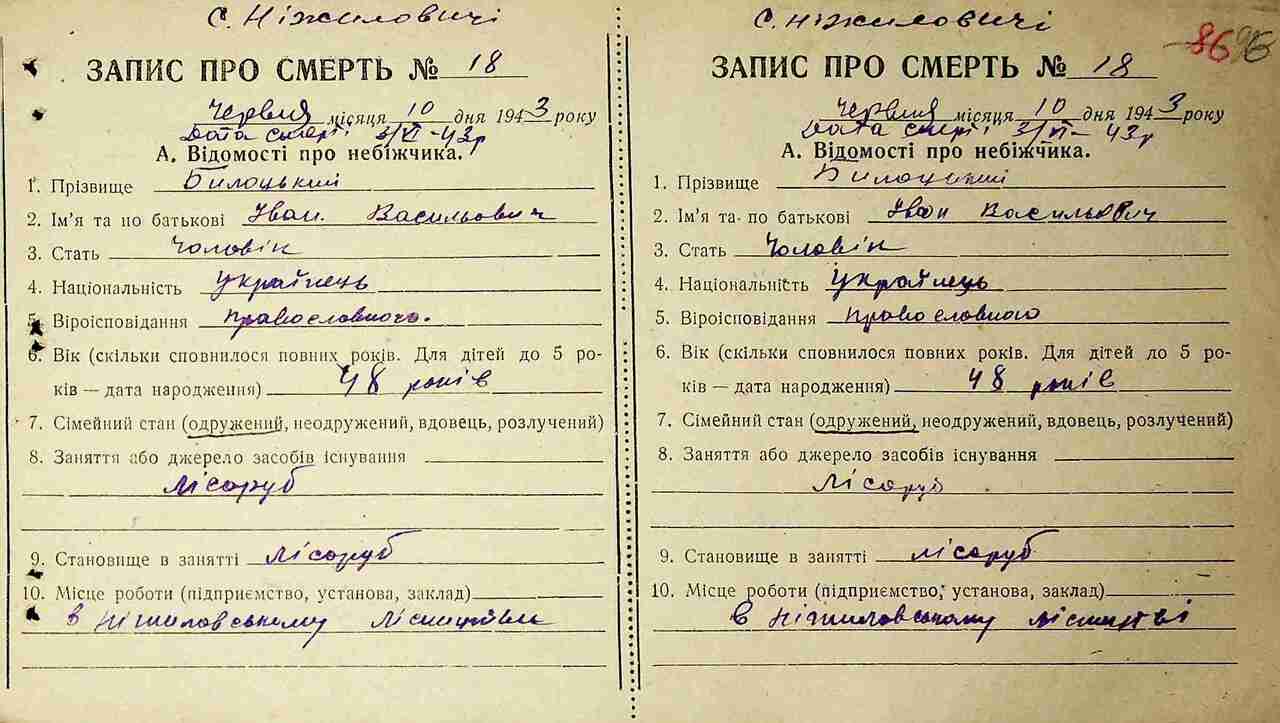 с. Ніжиловичі
ЗАПИС ПРО СМЕРТЬ № 18
Червня місяця 10 дня 1943 року
Дата смерт: 3/VI-43р
А. Відомості про небіжчика.
1. Прізвище Билоцький
2. Ім'я та по батькові Іван Васильович
3. Стать Чоловік
4. Національність Українець
5. Віроісповідання православного.
6. Вік (скільки сповнилося повних років. Для дітей до 5 ро-
ків — дата народження) 48 років
7. Сімейний стан (одружений, неодружений, вдовець, розлучений)
8. Заняття або джерело засобів існування
Лісоруб
9. Становище в занятті лісоруб
10. Місце роботи (підприємство, установа, заклад)
в Ніжиловському
с. Ніжиловичі
86 96
ЗАПИС ПРО СМЕРТЬ № 18
Червня місяця 10 дня 1943 року
Дата смерт: 3/VI-43р
А. Відомості про небіжчика.
1. Прізвище Билоцький
2. Ім'я та по батькові Іван Васильович
3. Стать Чоловік
4. Національність Українець
5. Віроісповідання православного
6. Вік (скільки сповнилося повних років. Для дітей до 5 ро-
ків — дата народження) 48 років
7. Сімейний стан (одружений, неодружений, вдовець, розлучений)
8. Заняття або джерело засобів існування
Лісоруб
9. Становище в занятті лісоруб
10. Місце роботи (підприємство, установа, заклад)
в Ніжиловському лісництві